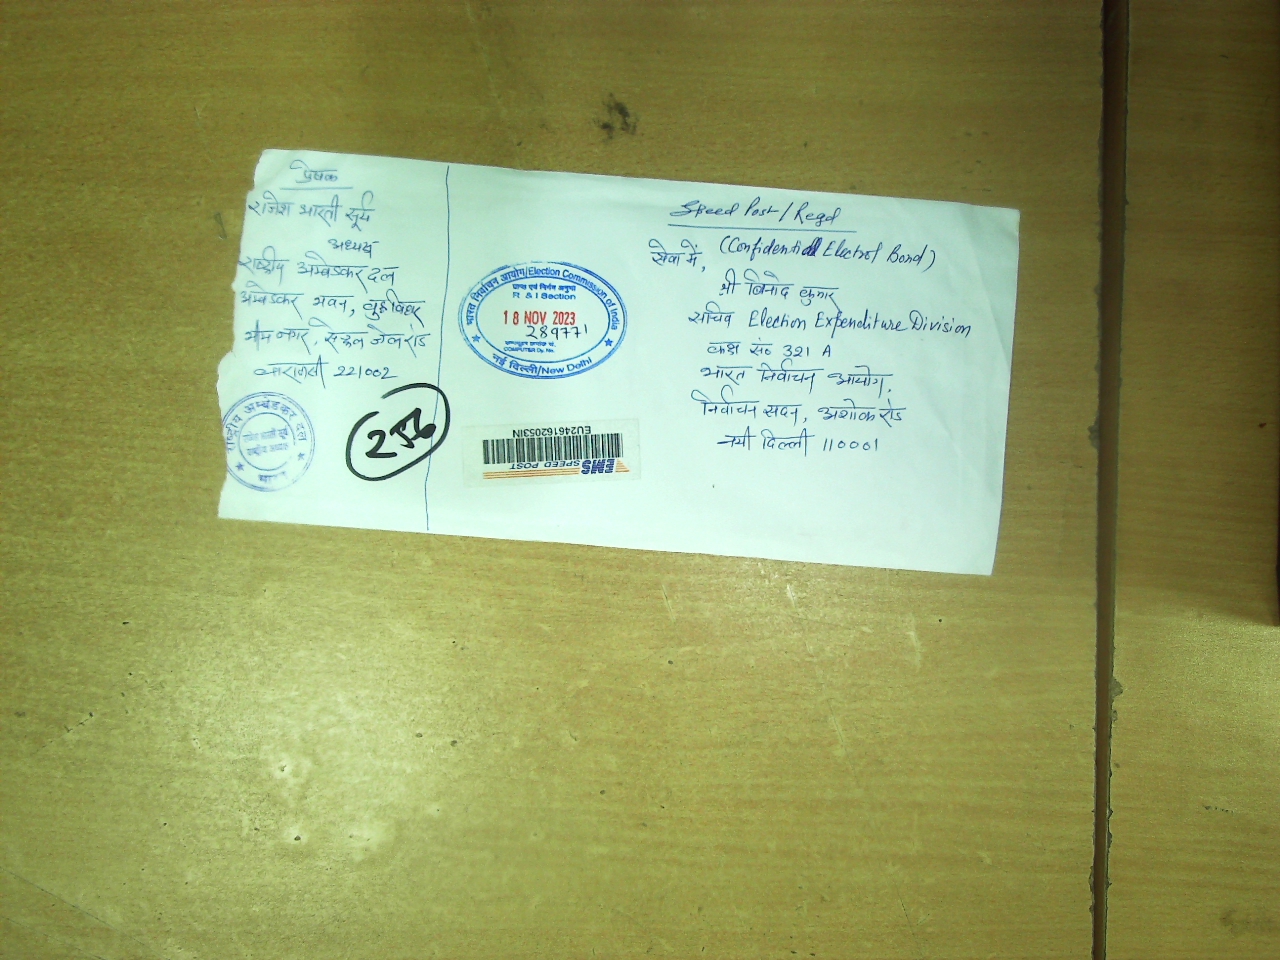 प्रेषक
राजेश भारती सूर्य
अध्यक्ष
राष्ट्रीय अम्बेडकर दल
अम्बेडकर भवन, बुद्ध विहार
भीम नगर, सेन्ट्रल जेल रोड
वाराणसी 221002
राष्ट्रीय अम्बेडकर दल
भारत
256
भारत निर्वाचन आयोग/Election Commission of India
R & I Section
18 NOV 2023
289771
COMPUTER Dy. No.
नई दिल्ली/New Delhi
EU246162053IN
EMS SPEED POST
Speed Post/Regd
सेवा में, (Confidential Electrol Bond)
श्री बिनोद कुमार
सचिव Election Expenditure Division
कक्ष सं० 321 A
भारत निर्वाचन आयोग,
निर्वाचन सदन, अशोक रोड
नयी दिल्ली 110001